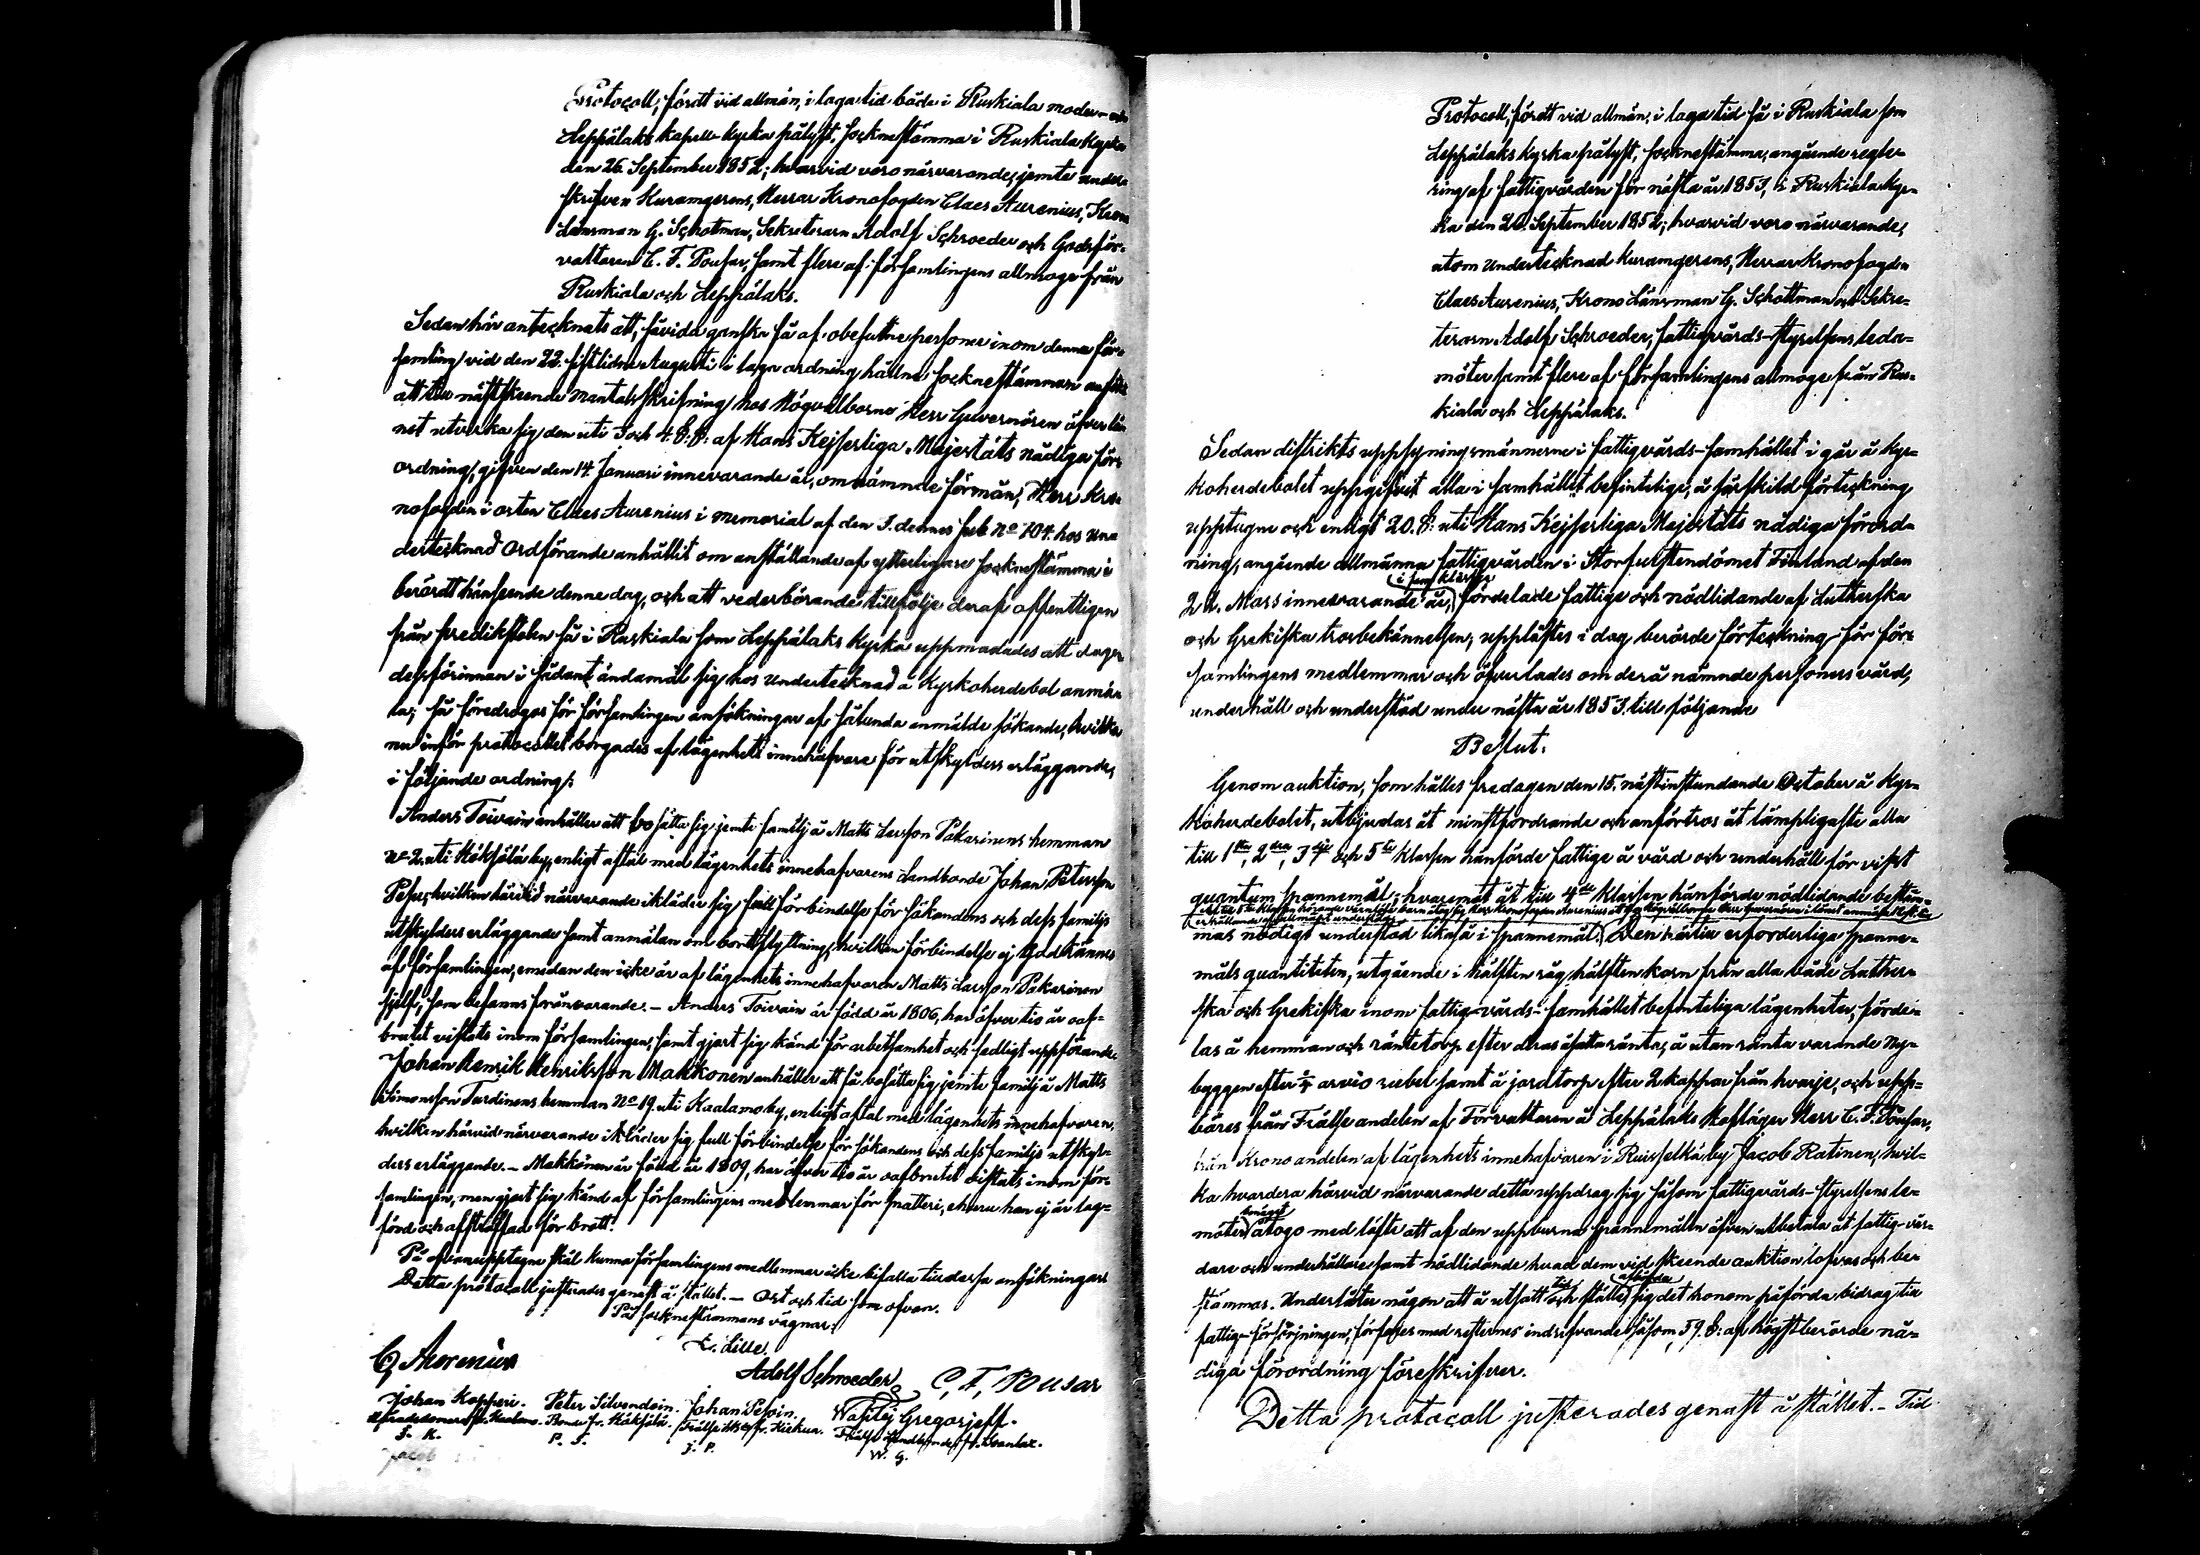 Protocoll, fördt vid allmän, i laga tid både i Ruskiala moder- och
Leppälaks kapell-kyrka pålyst, sockenstämma i Ruskiala Kyrka
den 26. September 1852; hvarvid voro närvarande, jemte under-
skrifven Kuramgerens, Herrar Kronofogden Claes Aurenius, Krono
Länsman G. Schottman, Sekreteraren Adolf Schroeder och Godsför-
valtaren C. F. Pousar, samt flere af församlingens allmoge från
Ruskiala och Leppälaks.
Sedan här antecknats att, såvida ganska få af obesuttne personer inom denna för-
samling vid den 22. sistlidne Augusti i laga ordning hållne sockenstämman ansökt
att till nästskeende Mantalsskrifning hos Högvälborne Herr Guvernören öfver lä-
net utverka sig den uti 3 och 4. §.§. af Hans Kejserliga Majestäts nådiga för-
ordning, gifven den 14 Januari innevarande år, omnämnde förmån, Herr Kro-
nofogden i orten Claes Aurenius i memorial af den 3. dennes sub No 704. hos un-
dertecknad Ordförande anhållit om anställande af ytterligare sockenstämma i
berördt hänseende denne dag, och att vederbörande till följe deraf offentligen
från predikstolen så i Ruskiala som Leppälaks Kyrka uppmanades att dagen
dessförinnan i sådant ändamål sig hos undertecknad å Kyrkoherdebol anmä-
la; så föredrogos för församlingen ansökningar af sålunda anmälde sökande, hvilka
nu inför protocollet borgades af lägenhets innehafvare för utskylders erläggande,
i följande ordning:
Anders Toivain anhåller att bosätta sig jemte familj å Matts Larsson Pakarinens hemman
No 2. uti Höksälä by, enligt aftal med lägenhets innehafvarens Landbonde Johan Petersson
Pesu, hvilken härvid närvarande ikläder sig full förbindelse för sökandens och dess familjs
utskylders erläggande samt anmälan om bortflyttning, hvilken förbindelse ej godkännes
af församlingen, emedan den icke är af lägenhets innehafvaren Matts Larsson Pakarinen
sjelf, som befanns frånvarande. – Anders Toivain är född år 1806, har öfver tio år oaf-
brutet vistats inom församlingen, samt gjort sig känd för arbetsamhet och sedligt uppförande.
Johan Henrik Henriksson Makkonen anhåller att få bosätta sig jemte familj å Matts
Simonsson Turdinens hemman No 19. uti Kaalamo by, enligt aftal med lägenhets innehafvaren,
hvilken härvid närvarande ikläder sig full förbindelse för sökandens och dess familjs utskyl-
ders erläggande. – Makkonen är född år 1809, har öfver tio år oafbrutet vistats inom för-
samlingen, men gjort sig känd af församlingens medlemmar för snatteri, ehuru han ej är lag-
förd och afstraffad för brott.
På ofvanupptagne skäl kunna församlingens medlemmar icke bifalla till dessa ansökningar.
Detta protocoll justerades genast å stället. – Ort och tid som ofvan.
På sockenstämmans vägnar:
E. Lille.
C. Aurenius
Adolf Schroeder
C. F. Pousar
Johan Kopperi. Peter Silvendoin. Johan Pesoin. Wasilej Gregorjeff.
J. K. P. S. J. P. W. G.
Jacob
Protocoll, fördt vid allmän, i laga tid så i Ruskiala som
Leppälaks Kyrka pålyst, sockenstämma, angående regle-
ring af fattigvården för nästa år 1853, i Ruskiala Kyr-
ka den 26. September 1852; hvarvid voro närvarande,
utom Undertecknad Kuramgerens, Herrar Kronofogden
Claes Aurenius, Krono Länsman G. Schottman och Sekre-
teraren Adolf Schroeder, fattigvårds-styrelsens leda-
möter samt flere af församlingens allmoge från Rus-
kiala och Leppälaks.
Sedan distrikts uppsyningsmännerne i fattigvårds-samhället i går å Kyr-
koherdebolet uppgifvit alla i samhället befintelige, å särskild förteckning
upptagne och enligt 20. §. uti Hans Kejserliga Majestäts nådiga förord-
ning, angående allmänna fattigvården i Storfurstendömet Finland af den
22. Mars innevarande år, (i fem klasser) fördelade fattige och nödlidande af Lutherska
och Grekiska trosbekännelsen, upplästes i dag berörde förteckning för för-
samlingens medlemmar och öfverlades om derå nämnde personers vård,
underhåll och understöd under nästa år 1853. till följande
Beslut:
Genom auktion, som hålles fredagen den 15. nästinstundande October å Kyr-
koherdebolet, utbjudas åt minstfordrande och anförtros åt lämpligaste alla
till 1sta, 2dra, 3dje och 5te klassen hänförde fattige å vård och underhåll för visst
quantum spannemål; hvaremot åt till 4de klassen hänförde nödlidande bestäm-
mas nödigt understöd likaså i spannemål. Den härtill erforderliga spanne-
måls quantiteten, utgående i hälften råg hälften korn från alla både Luther-
ska och Grekiska inom fattig-vårds-samhället befinteliga lägenheter, förde-
las å hemman och räntetorp efter deras åsatta ränta, å utan ränta varande Ny-
byggen efter arvio rubel samt å jordtorp efter 2 kappar från hvarje, och upp-
bäres från Frälse andelen af Förvaltaren å Leppälaks Hofläger Herr C. F. Pousar,
från Krono andelen af lägenhets innehafvaren i Ruisselkä by Jacob Ratinen, hvil-
ka hvardera härvid närvarande detta uppdrag sig såsom fattigvårds-styrelsens le-
möter åtogo med löfte att af den uppburna spannemålen äfven utbetala åt fattig-vår-
dare och underhållare samt nödlidande hvad dem vid skeende auktion lofvas och be-
stämmas. Underlåter någon att å utsatt tid och ställe sig det honom påförda bidrag till
fattig-försörjningen, förfares med resternes indrifvande såsom 59. §. af högstberörde nå-
diga förordning föreskrifver.
Detta protocoll justerades genast å stället. – Tid